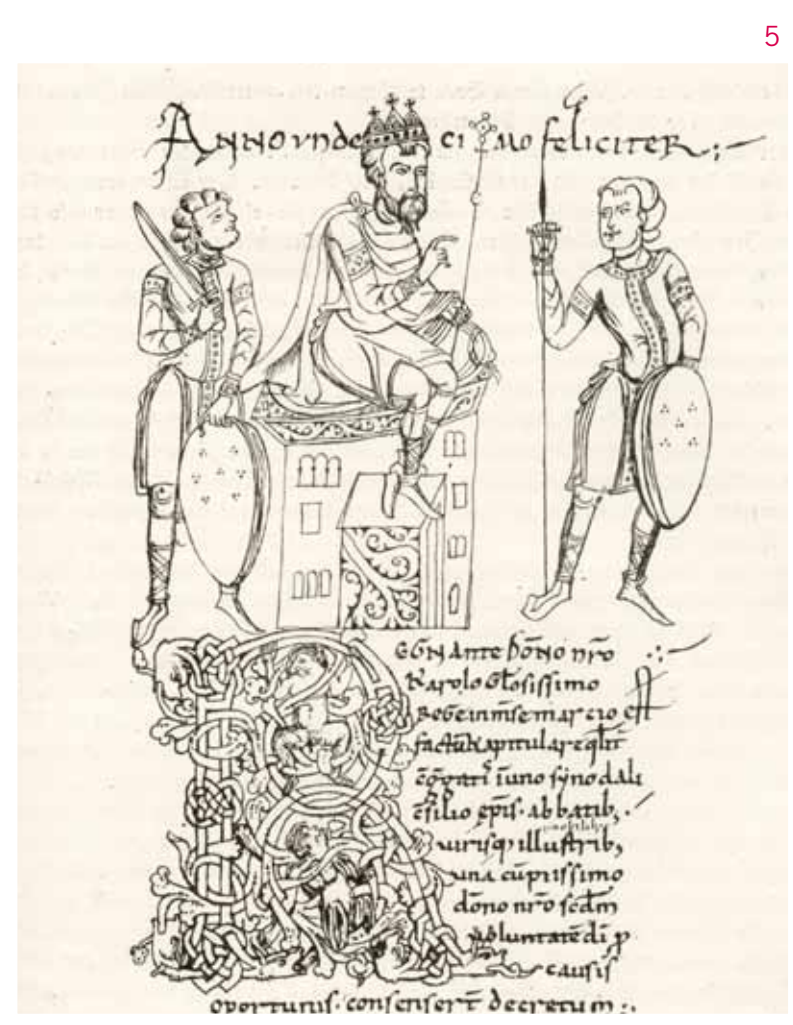 5
ANNO VNDECIMO feliciter
REGNANTE DōNO nr̄o
KArolo GLōsissimo
ReGe iN mse mArcio
factū kapitulare qlit̄
cōgati ī uno synodali
c̄silio ep̄is. abbatib;
uirisq; illustrib;
una cū piissimo
dōno nr̄o scdm
uoluntatē di p
causis
oportunis. consensert̄ decretum